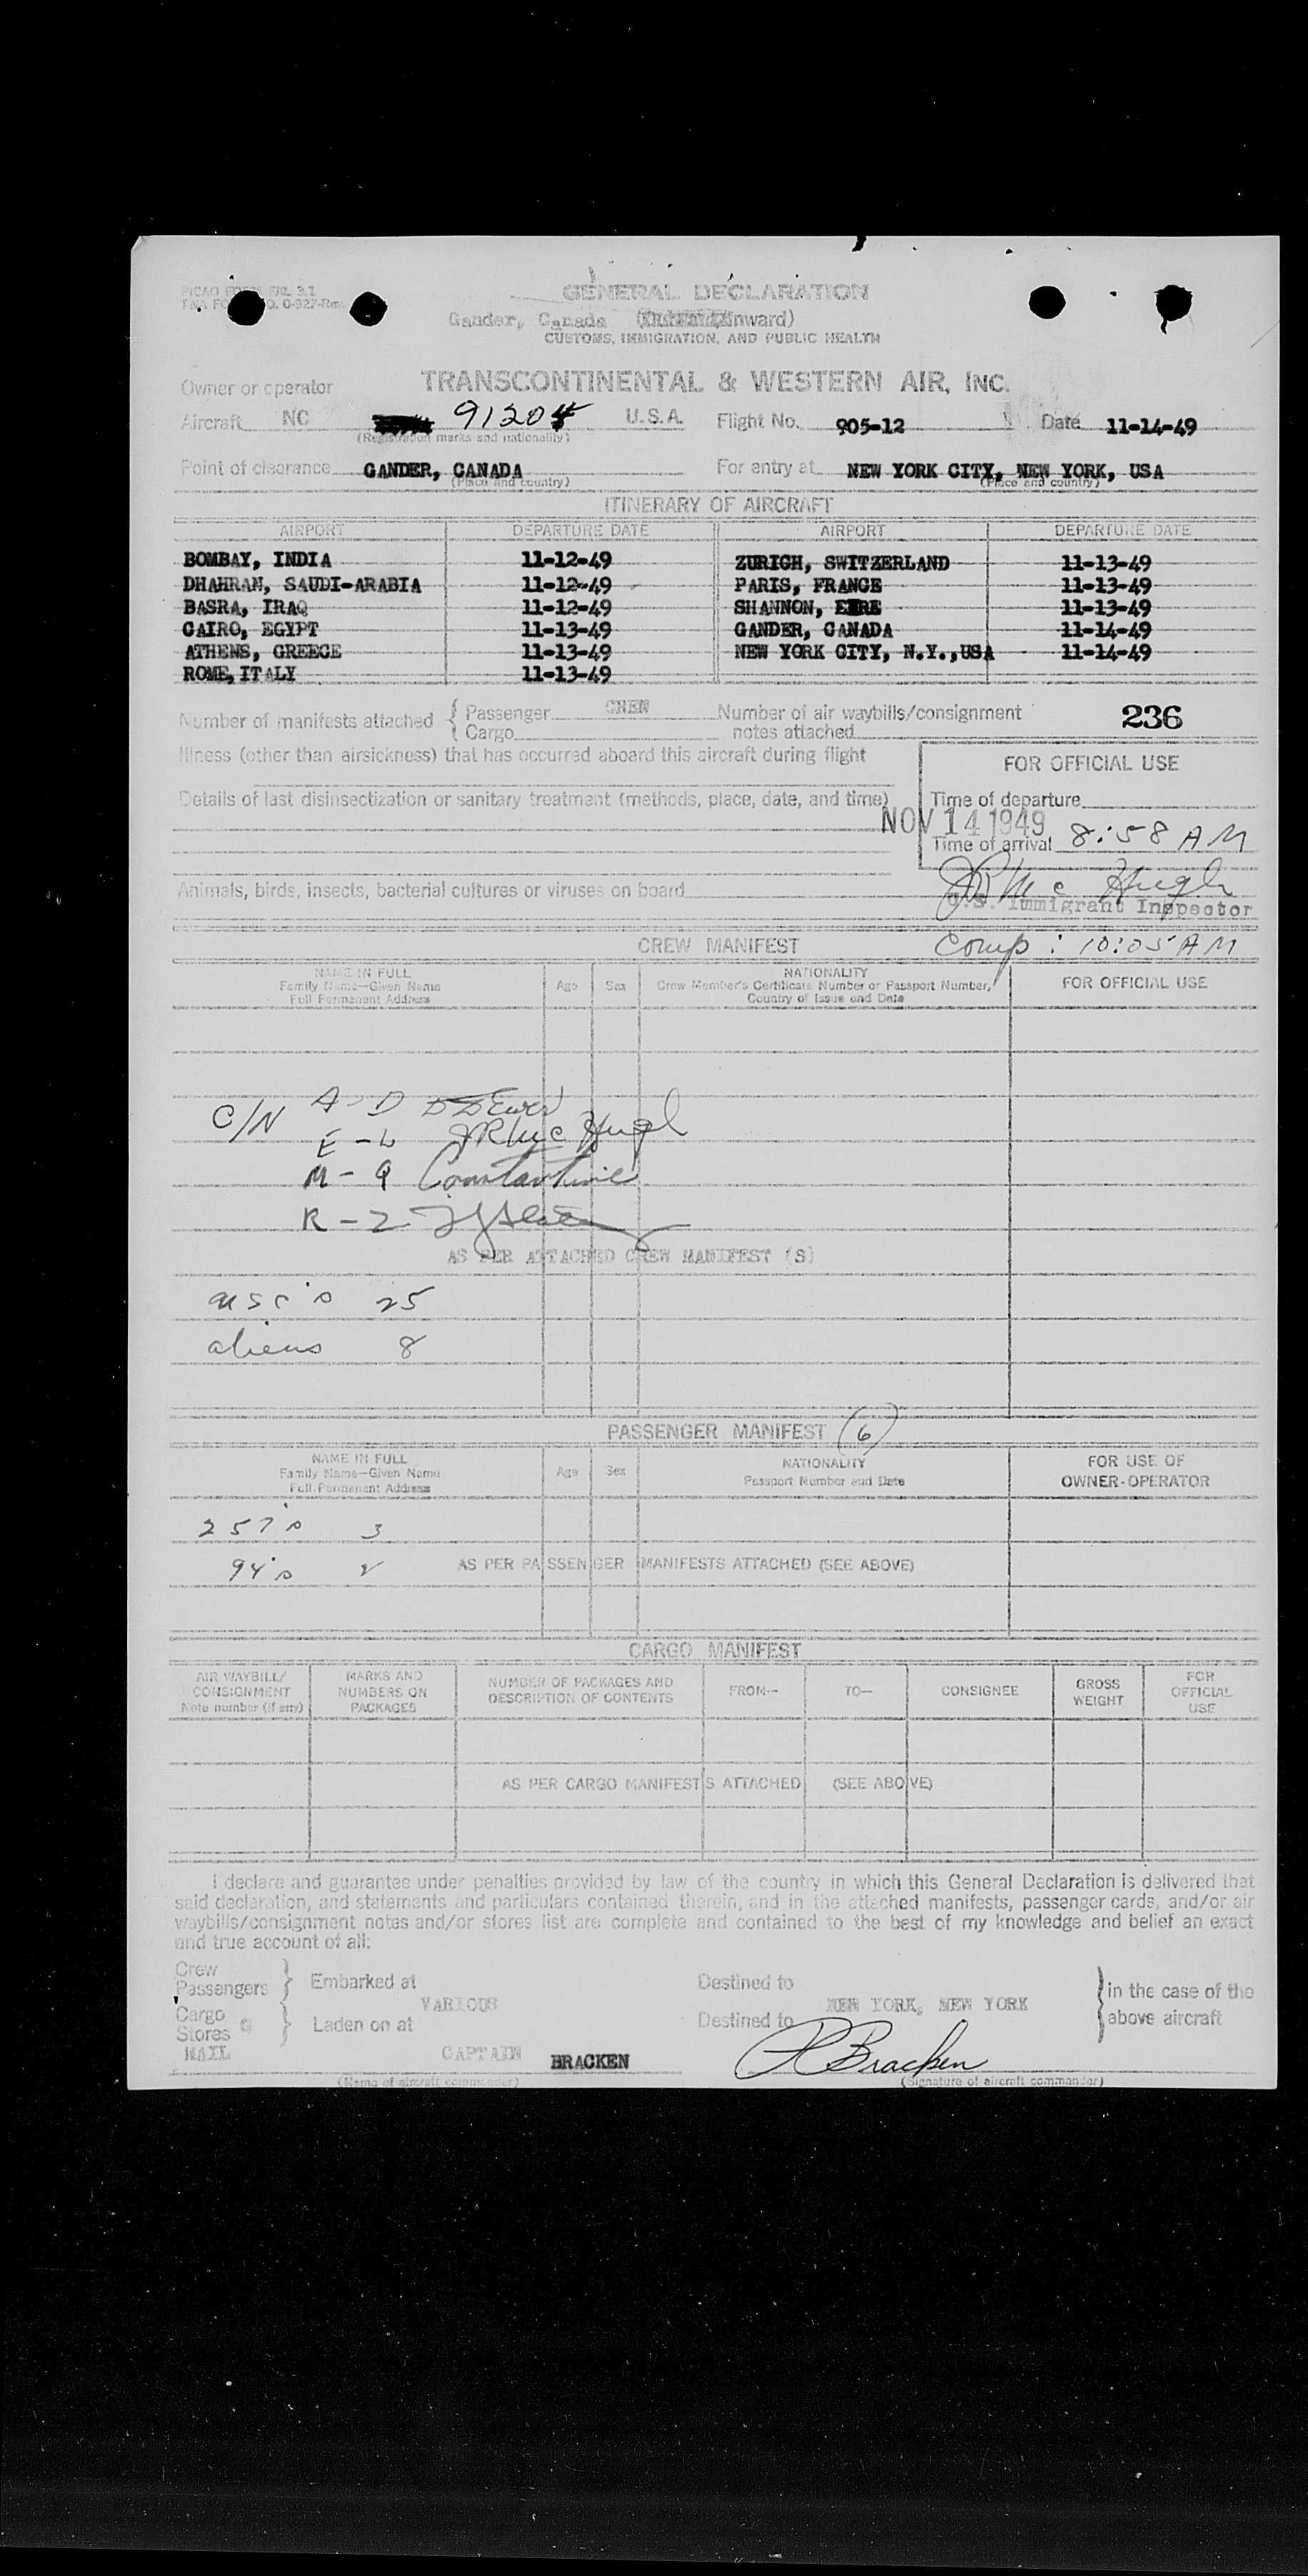 PICAO FORM FAL 2.1
GENERAL DECLARATION
Gander, Canada (Inward)
CUSTOMS, IMMIGRATION, AND PUBLIC HEALTH
Owner or operator TRANSCONTINENTAL & WESTERN AIR, INC.
Aircraft NC 91204 U.S.A. Flight No. 905-12 Date 11-14-49
(Registration marks and nationality)
Point of clearance GANDER, CANADA For entry at NEW YORK CITY, NEW YORK, USA
(Place and country) (Place and country)
ITINERARY OF AIRCRAFT
AIRPORT DEPARTURE DATE AIRPORT DEPARTURE DATE
BOMBAY, INDIA 11-12-49 ZURICH, SWITZERLAND 11-13-49
DHAHRAN, SAUDI-ARABIA 11-12-49 PARIS, FRANCE 11-13-49
BASRA, IRAQ 11-12-49 SHANNON, EIRE 11-13-49
CAIRO, EGYPT 11-13-49 GANDER, CANADA 11-14-49
ATHENS, GREECE 11-13-49 NEW YORK CITY, N.Y.,USA 11-14-49
ROME, ITALY 11-13-49
Number of manifests attached { Passenger CREW Number of air waybills/consignment 236
Cargo notes attached
Illness (other than airsickness) that has occurred aboard this aircraft during flight
FOR OFFICIAL USE
Details of last disinsectization or sanitary treatment (methods, place, date, and time)
Time of departure
NOV 14 1949
Time of arrival 8:58 AM
Animals, birds, insects, bacterial cultures or viruses on board
JR McHugh
U.S. Immigrant Inspector
CREW MANIFEST Comp: 10:05 AM
NAME IN FULL
Family Name—Given Name
Full Permanent Address
Age Sex
NATIONALITY
Crew Member's Certificate Number or Passport Number,
Country of Issue and Date
FOR OFFICIAL USE
C/N A-D
E-L JR McHugh
M-Q Constantine
R-Z
AS PER ATTACHED CREW MANIFEST (S)
USC's 25
aliens 8
PASSENGER MANIFEST (6)
NAME IN FULL
Family Name—Given Name
Full Permanent Address
Age Sex
NATIONALITY
Passport Number and Date
FOR USE OF
OWNER-OPERATOR
257's 3
94's 2 AS PER PASSENGER MANIFESTS ATTACHED (SEE ABOVE)
CARGO MANIFEST
AIR WAYBILL/
CONSIGNMENT
Note number (if any)
MARKS AND
NUMBERS ON
PACKAGES
NUMBER OF PACKAGES AND
DESCRIPTION OF CONTENTS
FROM— TO— CONSIGNEE
GROSS
WEIGHT
FOR
OFFICIAL
USE
AS PER CARGO MANIFESTS ATTACHED (SEE ABOVE)
I declare and guarantee under penalties provided by law of the country in which this General Declaration is delivered that
said declaration, and statements and particulars contained therein, and in the attached manifests, passenger cards, and/or air
waybills/consignment notes and/or stores list are complete and contained to the best of my knowledge and belief an exact
and true account of all:
Crew
Passengers } Embarked at Destined to } in the case of the
VARIOUS NEW YORK, NEW YORK
Cargo
Stores } Laden on at Destined to above aircraft
MAIL CAPTAIN BRACKEN Bracken
(Name of aircraft commander) (Signature of aircraft commander)